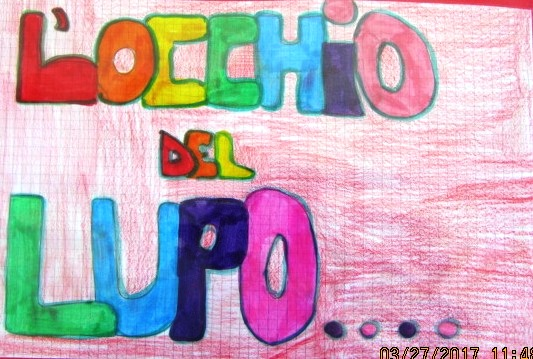 L'OCCHiO
DEL
LUPO....
03/27/2017 11:48